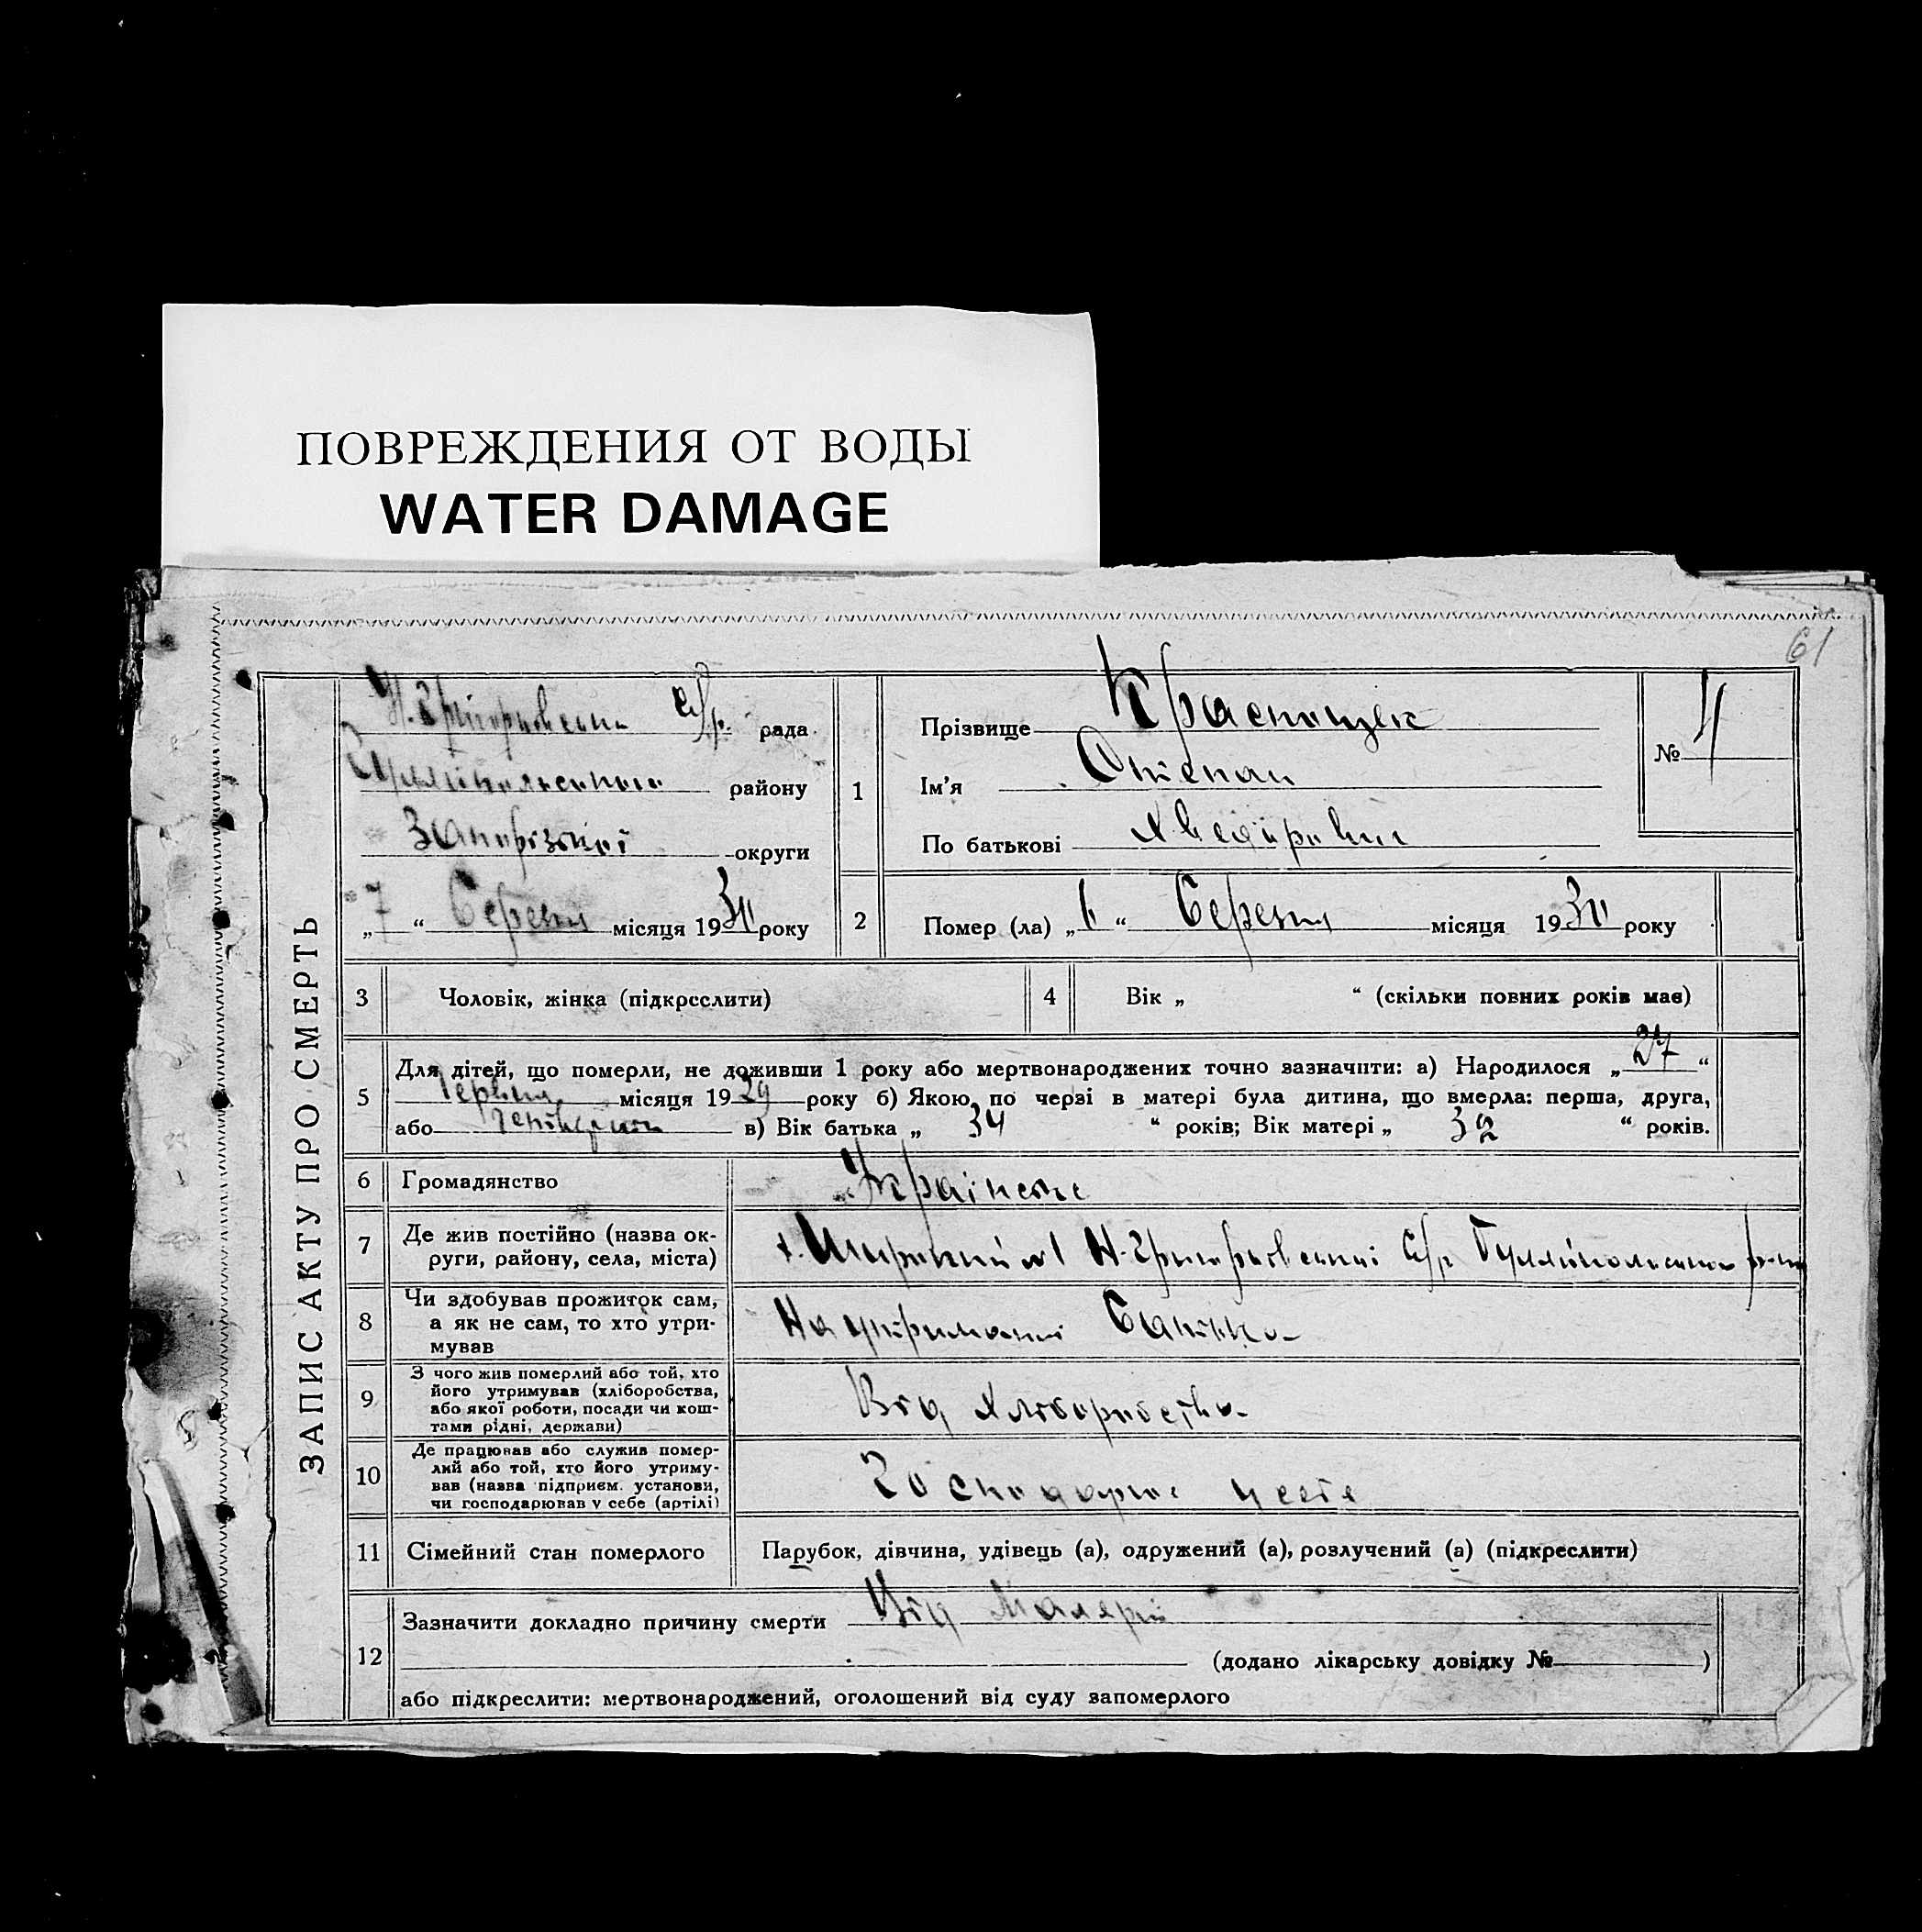 ПОВРЕЖДЕНИЯ ОТ ВОДЫ
WATER DAMAGE
61
ЗАПИС АКТУ ПРО СМЕРТЬ
Н. Григорівська с/р. рада
Гуляйпольського району
Запорізької округи
„7“ Березня місяця 1930 року
1
Прізвище
Ім'я Степан
По батькові Хведорович
№ 4
2
Помер (ла) „6“ Березня місяця 1930 року
3 Чоловік, жінка (підкреслити)
4 Вік „ “ (скільки повних років має)
5 Для дітей, що померли, не доживши 1 року або мертвонароджених точно зазначити: а) Народилося „27“
Червня місяця 1929 року б) Якою по черзі в матері була дитина, що вмерла: перша, друга,
або четвертою в) Вік батька „ 34 “ років; Вік матері „ 32 “ років.
6 Громадянство Українське
7 Де жив постійно (назва ок-
руги, району, села, міста) х. Н-Григорівської с/р Гуляйпольського р-ну
8 Чи здобував прожиток сам,
а як не сам, то хто утри-
мував На утриманні Батька
9 З чого жив померлий або той, хто
його утримував (хліборобства,
або якої роботи, посади чи кош-
тами рідні, держави) Від хліборобства
10 Де працював або служив помер-
лий або той, хто його утриму-
вав (назва підприєм. установи,
чи господарював у себе (артілі) Господарює у себе
11 Сімейний стан померлого Парубок, дівчина, удівець (а), одружений (а), розлучений (а) (підкреслити)
12 Зазначити докладно причину смерти Від Малярії
(додано лікарську довідку № )
або підкреслити: мертвонароджений, оголошений від суду запомерлого